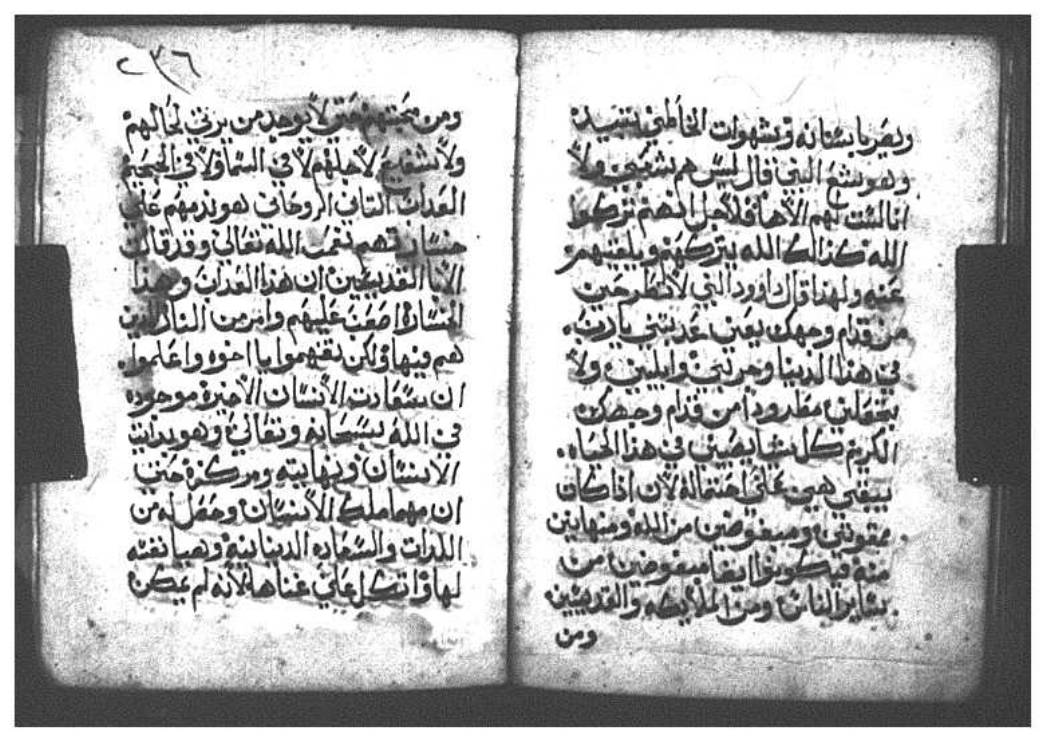 وبصر بابستانه وبشهوات الخاطي بتنيد
وهو يشع النبي قال ليس هم شعبي ولا
انا لست لهم الاها فلاجل انهم تركوا
الله كذالك الله يتركهم ويلقيهم
عنه ولهذا قال داوود النبي لا تطرحني
من قدام وجهك يعني عذبني يارب
في هذا الدينا وحرني وابليني ولا
تجعلني مطرودا من قدام وجهك
الكريم كل شا يصيني في هذا الحياه
يبقي هين علي احتماله لان اذا كان
ممقوتين ومبغوضين من الله ومنهانين
منه فيكونوا ايضا مبغوضين من
ساير الناس ومن الملايكه والقديسين
ومن
٢٣٦
ومن محبتهم حتي لا يوجد من يرتي لحالهم
ولا شفيع لاجلهم لا في السما ولا في الجحيم
العداب التاني الروحاني هو ندمهم علي
خسارتهم نعمت الله تعالي وقد قالت
الابا القديسين ان هذا العداب وهذا
الخساره اصعب عليهم وامر من النار الدين
هم فيها ولكن تفهموا يا اخوه واعلموا
ان سعادت الانسان الاخيره موجوده
في الله سبحانه وتعالي وهو بدايت
الانسان ونهايته ومركزه حتي
ان مهما ملك الانسان وحصل له من
اللدات والسعاده الدنيانيه وهيا نفسه
لها واتكل علي غناها لانه لم يمكن